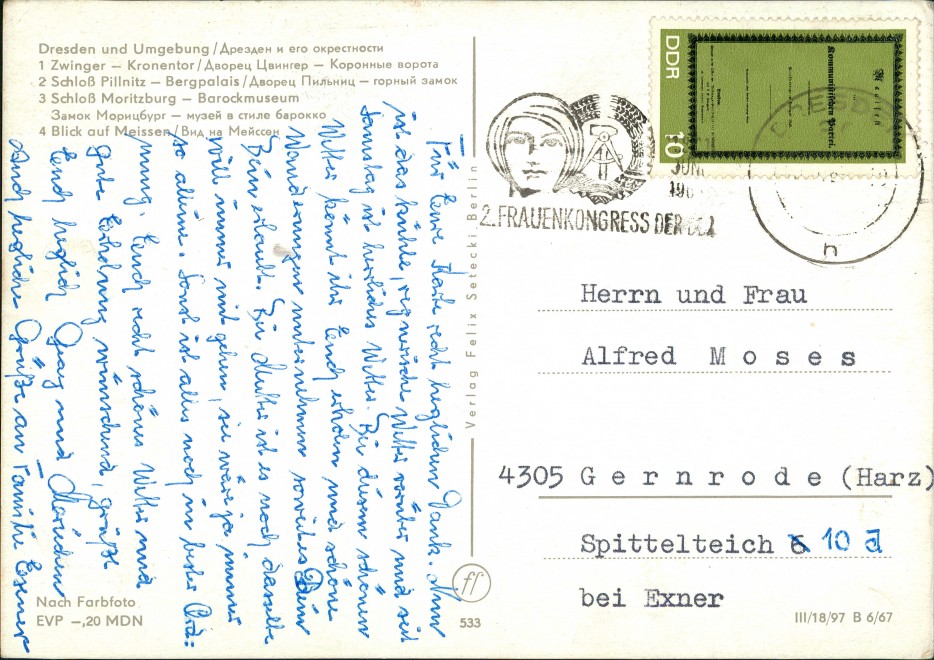 Dresden und Umgebung/Дрезден и его окрестности
1 Zwinger – Kronentor/Дворец Цвингер – Коронные ворота
2 Schloß Pillnitz – Bergpalais/Дворец Пильниц – горный замок
3 Schloß Moritzburg – Barockmuseum
Замок Морицбург – музей в стиле барокко
4 Blick auf Meissen/Вид на Мейссен
Für Eure Karte recht herzlichen Dank. Nun
ist das kühle, regnerische Wetter vorüber und seit
Sonnabend ist herrliches Wetter. Bei diesem schönen
Wetter könnt ihr Euch erholen und schöne
Wanderungen unternehmen soweit es Dein
Bein erlaubt. Bei Mutter ist es noch dasselbe
will immer mit gehen, sei wäre ja immer
so alleine. Sonst ist alles noch in bester Ord:
nung. Euch recht schönes Wetter und
gute Erholung wünschend, grüßt
Euch herzlich Georg und Mariechen
Auch herzliche Grüße an Familie Exner
Nach Farbfoto
EVP –,20 MDN
Verlag Felix Setecki Berlin
ff
533
DDR
10
Manifest
Kommunistischen Partei.
DRESDEN
JUNI
196
2. FRAUENKONGRESS DER DDR
h
Herrn und Frau
Alfred Moses
4305 Gernrode (Harz)
Spittelteich 10 a
bei Exner
III/18/97 B 6/67